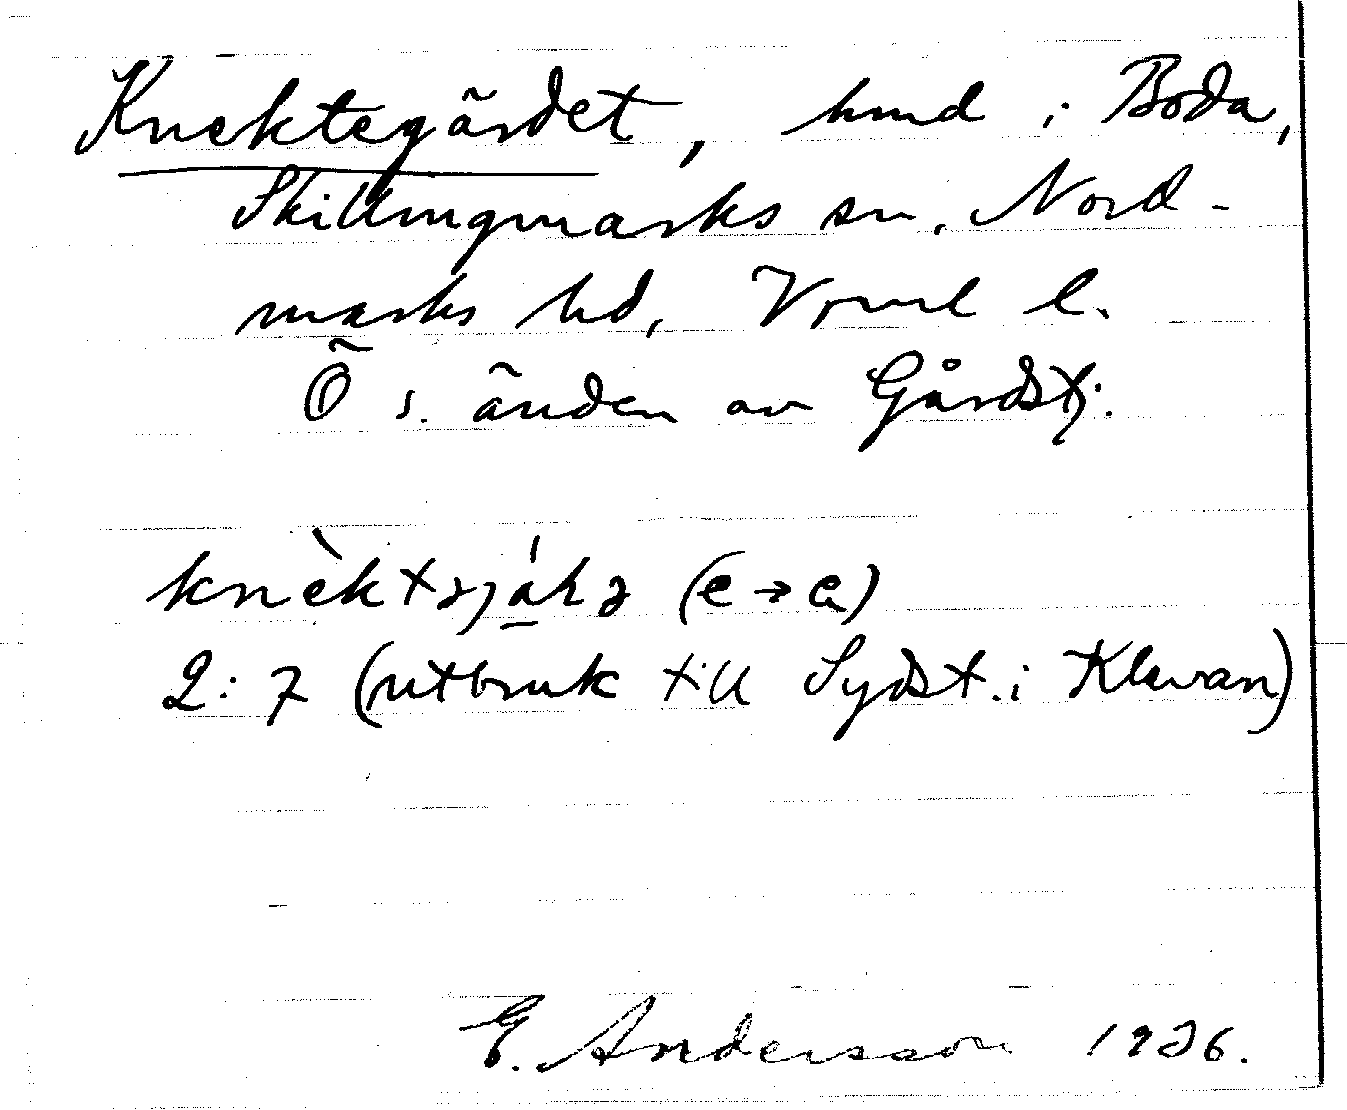 Knektegärdet, hmd i Boda,
Skillingmarks sn, Nord-
marks hd, Vrml l.
Ö s. änden av Gårdstj.
knèktəjáɫə (e → a)
2:7 (utbruk till Sydst. i Klevan)
E. Andersson 1926.